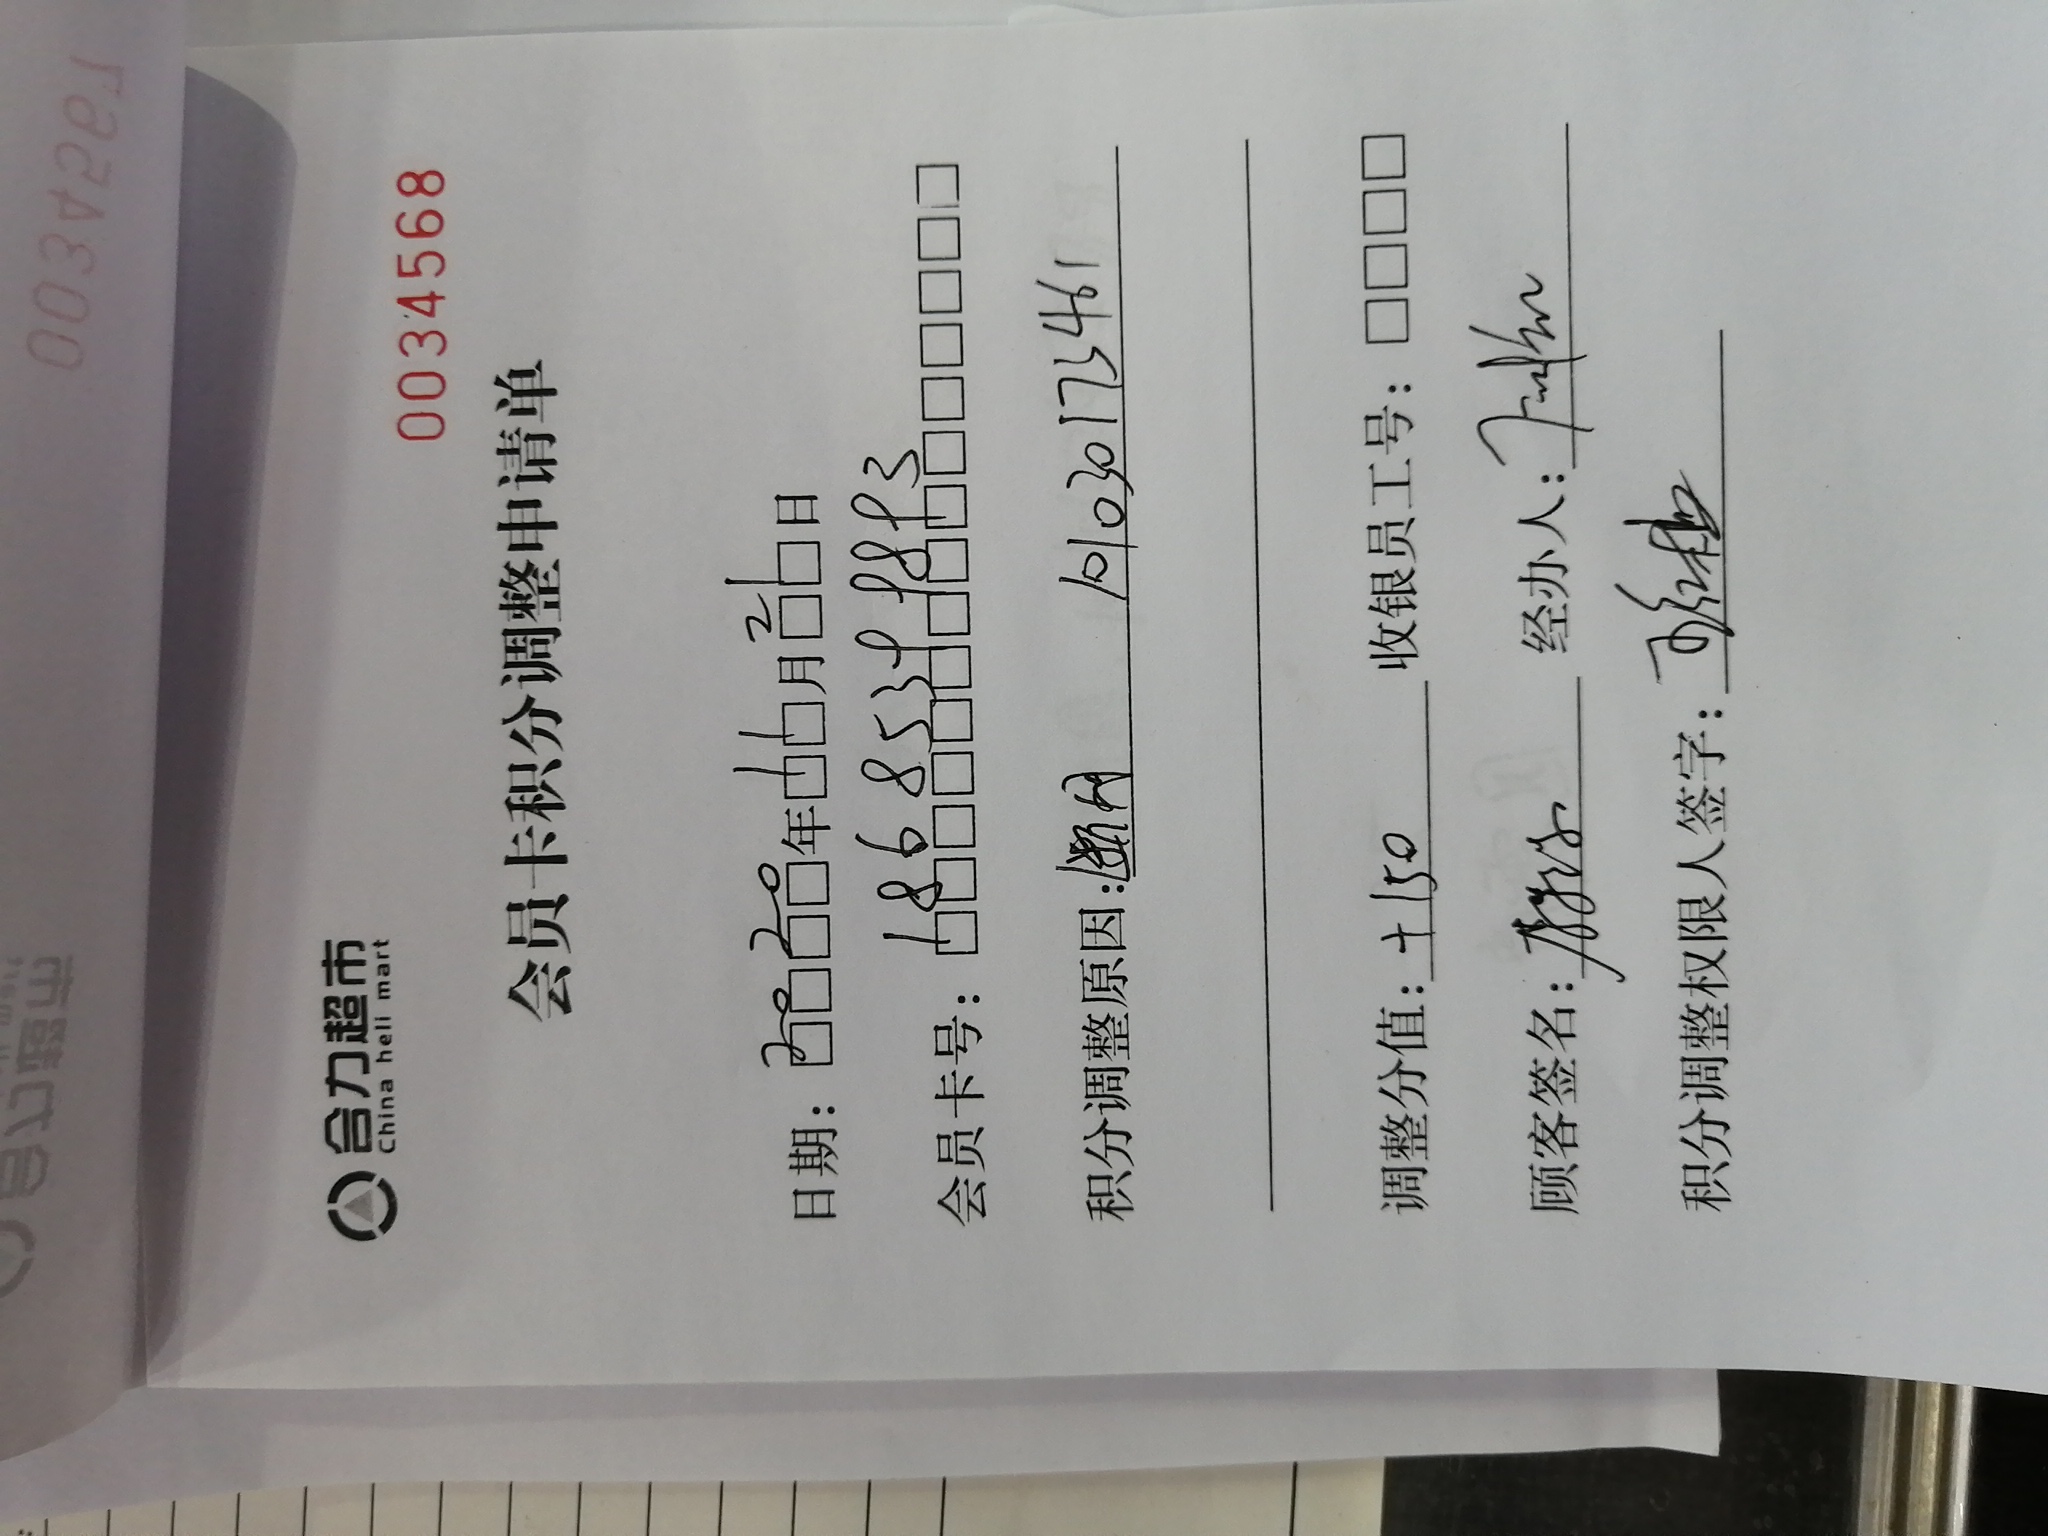 合力超市
China heli mart
0034568
会员卡积分调整申请单
日期：2020年11月21日
会员卡号：18685399893
积分调整原因：断网 101030173461
调整分值：+150 收银员工号：
顾客签名： 经办人：
积分调整权限人签字：